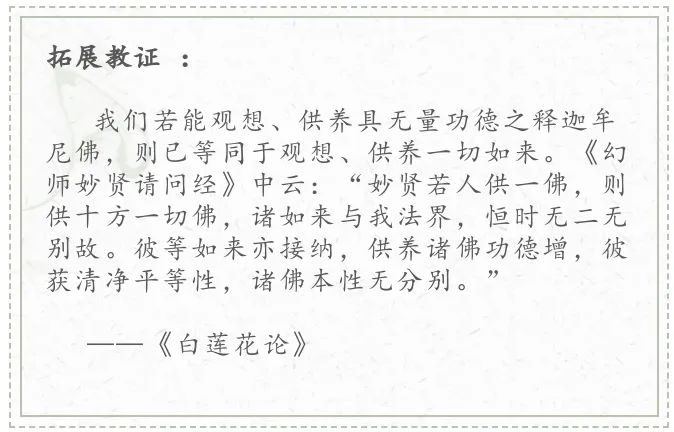 拓展教证 ：
我们若能观想、供养具无量功德之释迦牟
尼佛，则已等同于观想、供养一切如来。《幻
师妙贤请问经》中云：“妙贤若人供一佛，则
供十方一切佛，诸如来与我法界，恒时无二无
别故。彼等如来亦接纳，供养诸佛功德增，彼
获清净平等性，诸佛本性无分别。”
——《白莲花论》